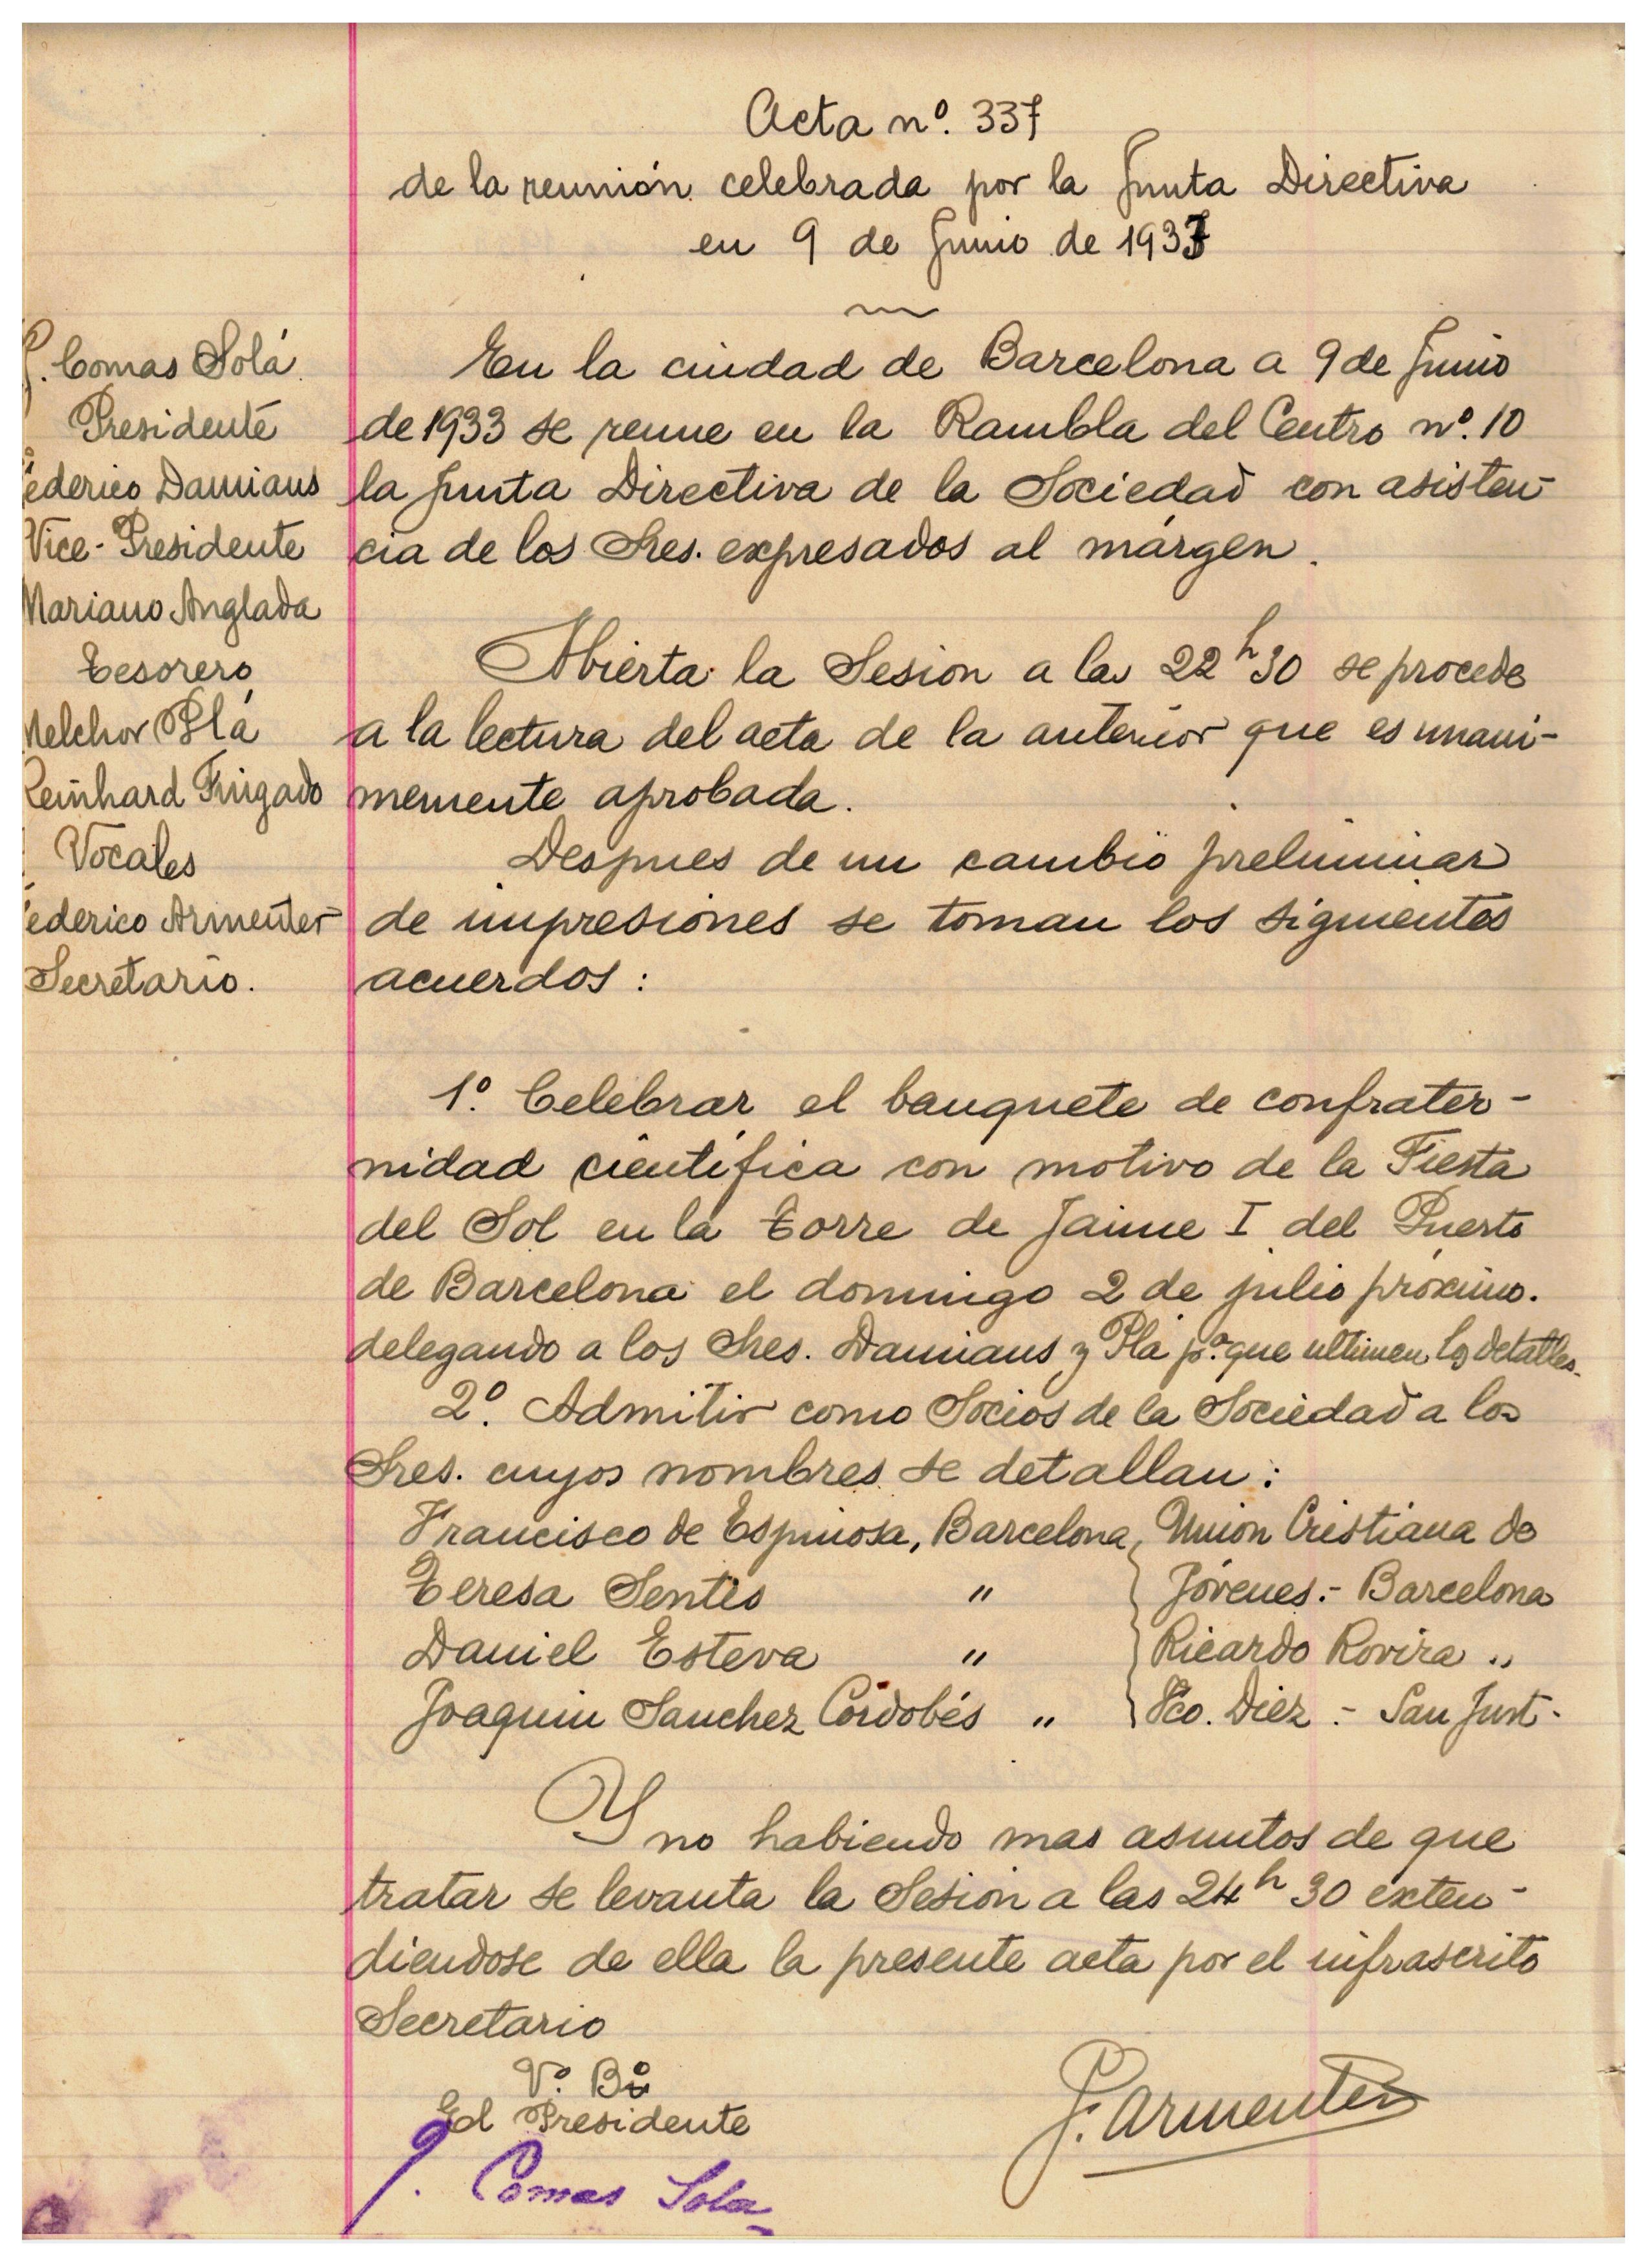 Acta nº. 337
de la reunión celebrada por la Junta Directiva
en 9 de Junio de 1933
J. Comas Solá
Presidente
Federico Damians
Vice-Presidente
Mariano Anglada
Tesorero
Melchor Plá
Reinhard Fingado
Vocales
Federico Armenter
Secretario.
En la ciudad de Barcelona a 9 de Junio
de 1933 se reune en la Rambla del Centro nº. 10
la Junta Directiva de la Sociedad con asisten-
cia de los Sres. expresados al márgen.
Abierta la Sesión a las 22 h 30 se procede
a la lectura del acta de la anterior que es unani-
memente aprobada.
Despues de un cambio preliminar
de impresiones se toman los siguientes
acuerdos:
1º. Celebrar el banquete de confrater-
nidad científica con motivo de la Fiesta
del Sol en la Torre de Jaime I del Puerto
de Barcelona el domingo 2 de julio próximo.
delegando a los Sres. Damians y Plá pª que ultimen los detalles.
2º. Admitir como Socios de la Sociedad a los
Sres. cuyos nombres se detallan:
Francisco de Espinosa, Barcelona, Unión Cristiana de
Teresa Sentís " Jóvenes.- Barcelona
Daniel Esteva " Ricardo Rovira "
Joaquin Sanchez Córdobés " Fco. Diez.- San Just.
Y no habiendo mas asuntos de que
tratar se levanta la Sesión a las 24 h 30 exten-
diendose de ella la presente acta por el infrascrito
Secretario
Vº. Bº
El Presidente
J. Comas Solá
F. Armenter